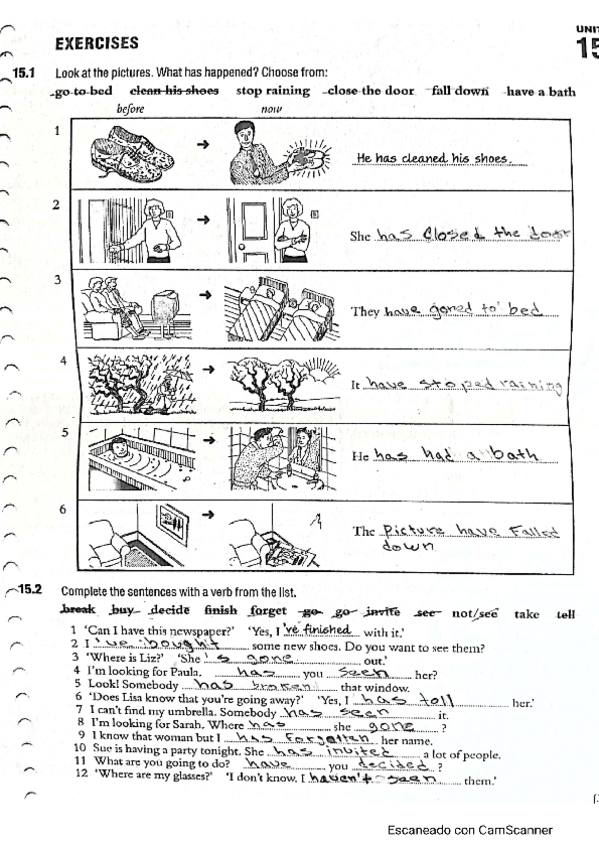 UNIT
EXERCISES
15
15.1 Look at the pictures. What has happened? Choose from:
go to bed clean his shoes stop raining close the door fall down have a bath
before now
1
He has cleaned his shoes.
2
She has Closed the door
3
They have goned to bed
4
It have stoped raining
5
He has had a bath
6
The Picture have Falled
down
15.2 Complete the sentences with a verb from the list.
break buy decide finish forget go go invite see not/see take tell
1 'Can I have this newspaper?' 'Yes, I 've finished with it.'
2 I 've bought some new shoes. Do you want to see them?
3 'Where is Liz?' 'She 's gone out.'
4 I'm looking for Paula. has you seen her?
5 Look! Somebody has broken that window.
6 'Does Lisa know that you're going away?' 'Yes, I has toll her.'
7 I can't find my umbrella. Somebody has seen it.
8 I'm looking for Sarah. Where has she gone ?
9 I know that woman but I has Forgotten her name.
10 Sue is having a party tonight. She has invited a lot of people.
11 What are you going to do? have you decided ?
12 'Where are my glasses?' 'I don't know. I haven't seen them.'
Escaneado con CamScanner